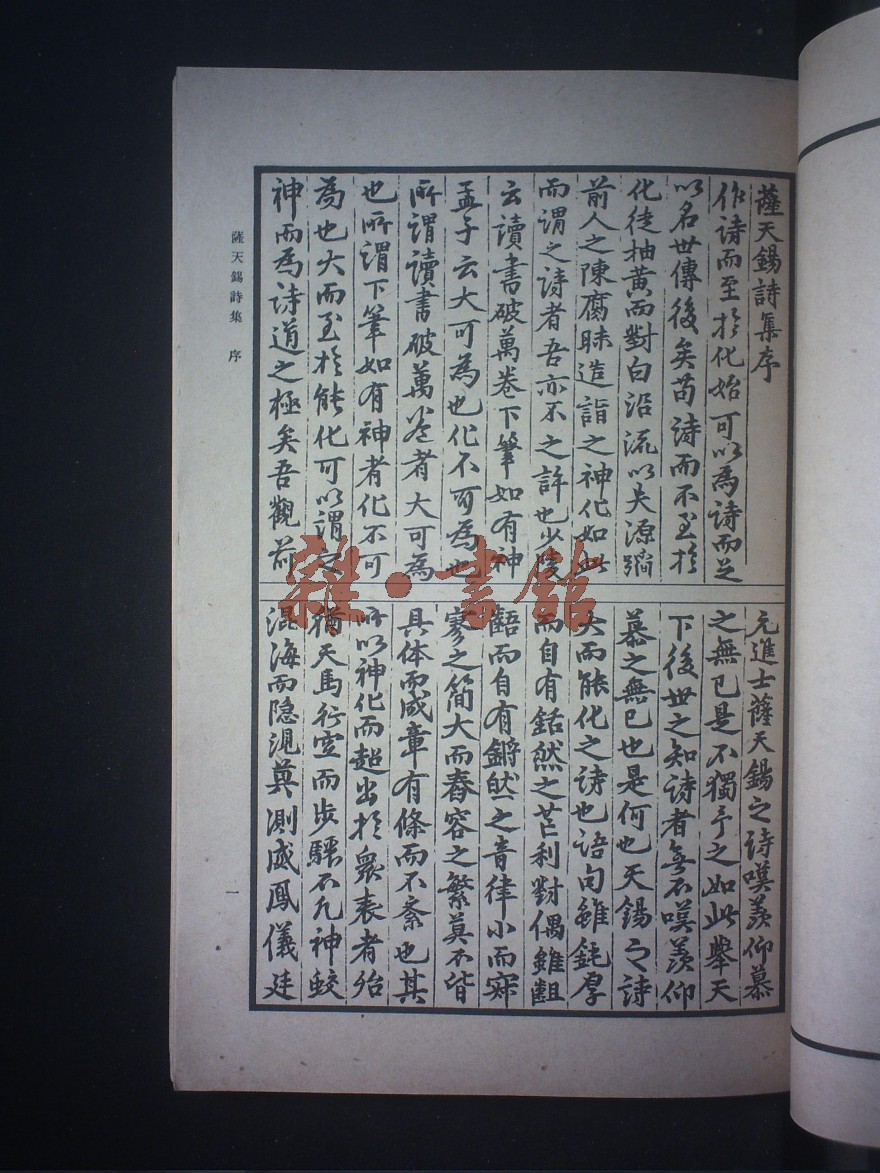 薩天錫詩集序
作詩而至於化始可以為詩而足
以名世傳後矣苟詩而不至於
化徒抽黃而對白沿流以失源蹈
前人之陳腐昧造詣之神化如此
而謂之詩者吾亦不之許也少陵
云讀書破萬卷下筆如有神
孟子云大可為也化不可為也
所謂讀書破萬卷者大可為
也所謂下筆如有神者化不可
為也大而至於能化可以謂之
神而為詩道之極矣吾觀前
元進士薩天錫之詩嘆羨仰慕
之無已是不獨予之如此舉天
下後世之知詩者無不嘆羨仰
慕之無已也是何也天錫之詩
大而能化之詩也語句雖鈍厚
而自有銛然之芒利對偶雖齟
齬而自有鏘然之音律小而寂
寥之簡大而舂容之繁莫不皆
具体而成章有條而不紊也其
所以神化而超出於眾表者殆
猶天馬行空而步驟不凡神蛟
混海而隱現莫測威鳳儀廷
薩天錫詩集 序
一
雜·書館